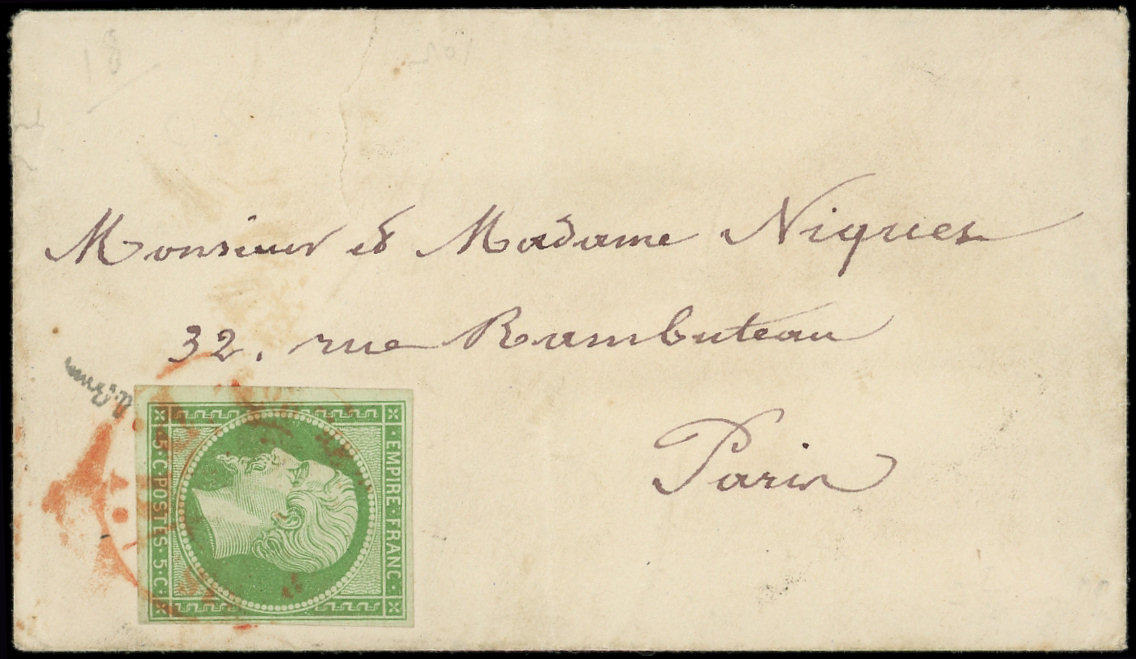 18
Monsieur et Madame Niquet
32. rue Rambuteau
Paris
EMPIRE·FRANC·
·5·C·POSTES·5·C·